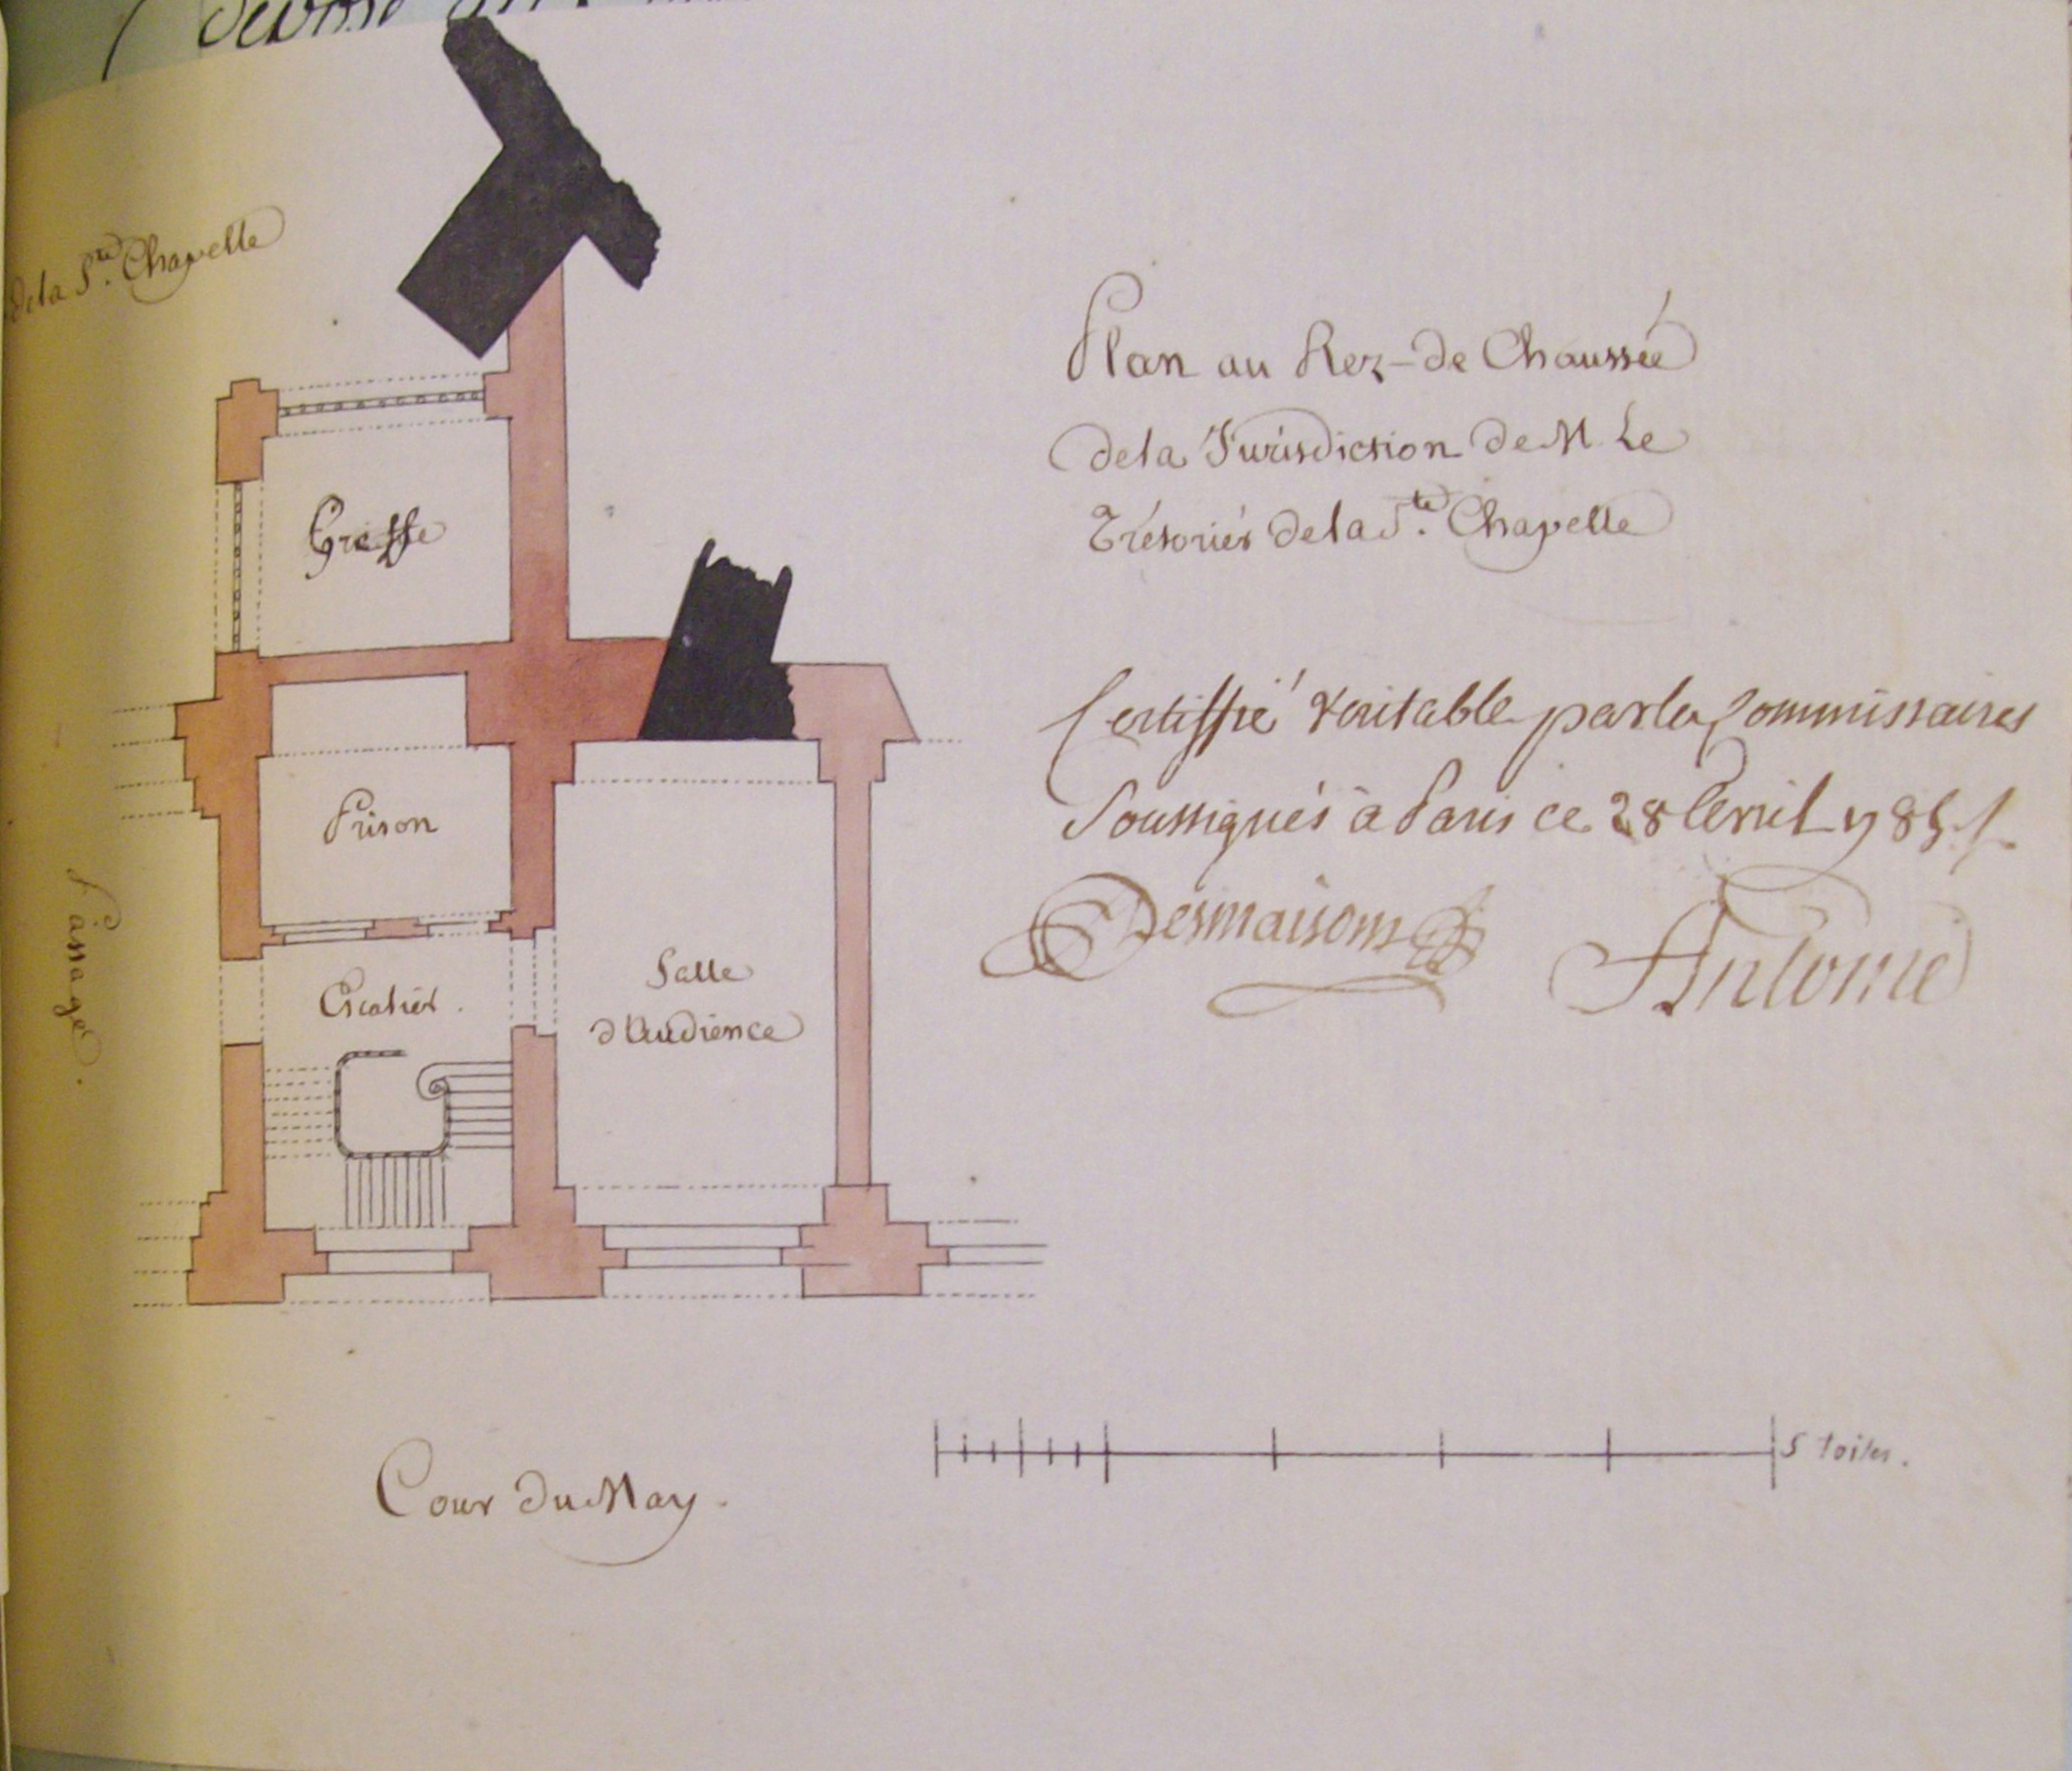 de la Ste. Chapelle
Plan au Rez-de Chaussée
de la Jurisdiction de M. Le
Trésorier de la Ste. Chapelle
Greffe
Certiffié véritable par les Commissaires
Soussignés à Paris ce 28 Avril 1785 ./.
Prison
Desmaisons
Antoine
Escalier.
Salle
d'Audience
Passage.
5 toises.
Cour du May.